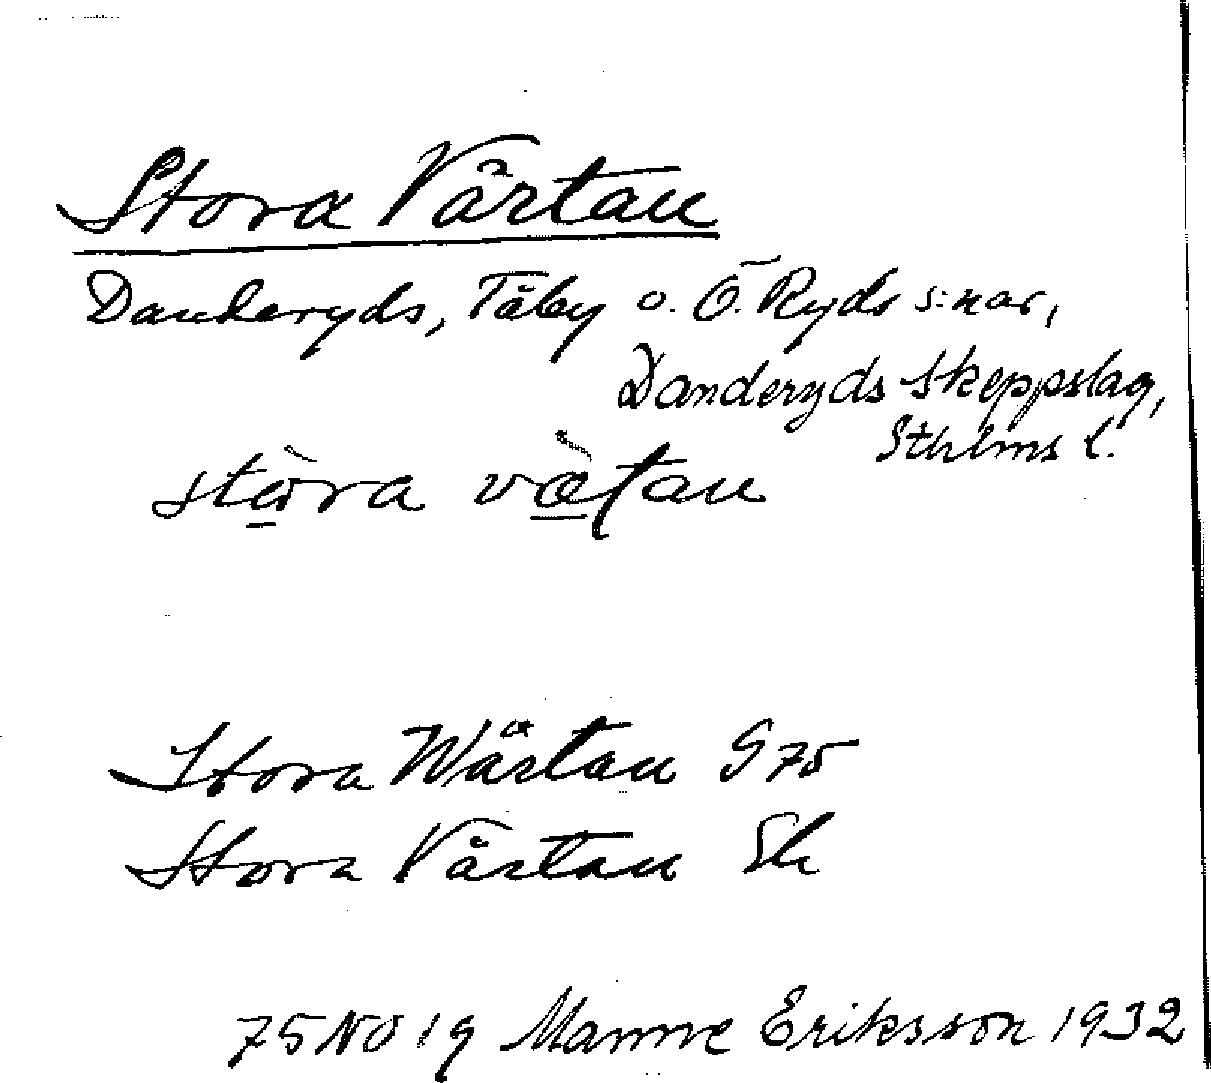 Stora Värtan
Danderyds, Täby o. Ö. Ryds s:nar,
Danderyds Skeppslag,
Sthlms l.
stòra væ̀tan
Stora Wärtan G 75
Stora Värtan Sk
75 NO 19 Manne Eriksson 1932